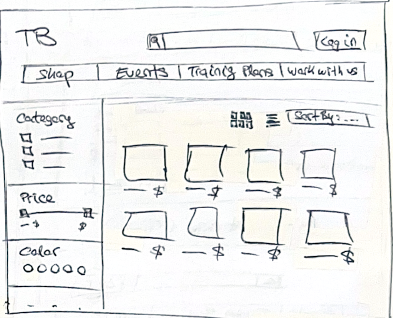 TB
Log in
Shop | Events | Training Plans | Work with us
Category
Sort By: ...
Price
$ $ $ $
- $ $
Color
$ $ $ $